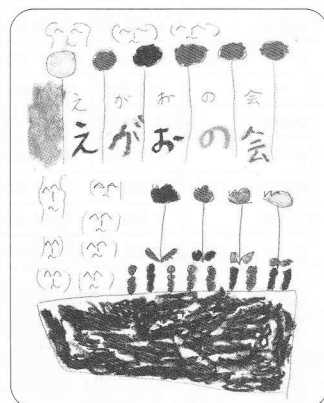 えがおの会
えがおの会